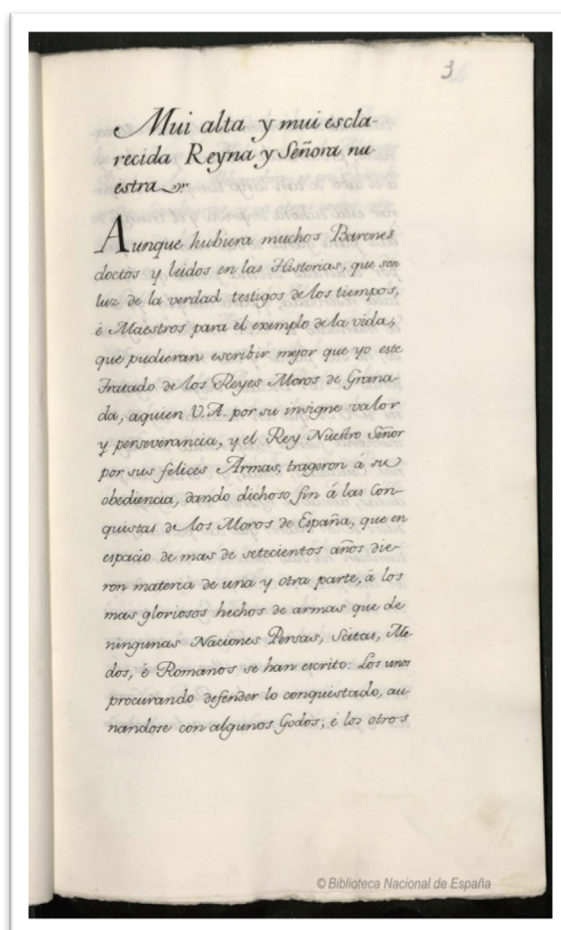 3
Mui alta y mui escla-
recida Reyna y Señora nu
estra
Aunque hubiera muchos Barones
doctos y leidos en las Historias, que son
luz de la verdad testigos de los tiempos,
é Maestros para el exemplo de la vida;
que pudieran escribir mejor que yo este
Tratado de los Reyes Moros de Grana-
da, aquien V.A. por su insigne valor
y perseverancia, y el Rey Nuestro Señor
por sus felices Armas, trageron á su
obediencia, dando dichoso fin á las Con-
quistas de los Moros de España, que en
espacio de mas de setecientos años die-
ron materia de una y otra parte, á los
mas gloriosos hechos de armas que de
ningunas Naciones Persas, Scitas, Me-
dos, é Romanos se han escrito. Los unos
procurando defender lo conquistado, au-
nandose con algunos Godos; é los otros
© Biblioteca Nacional de España